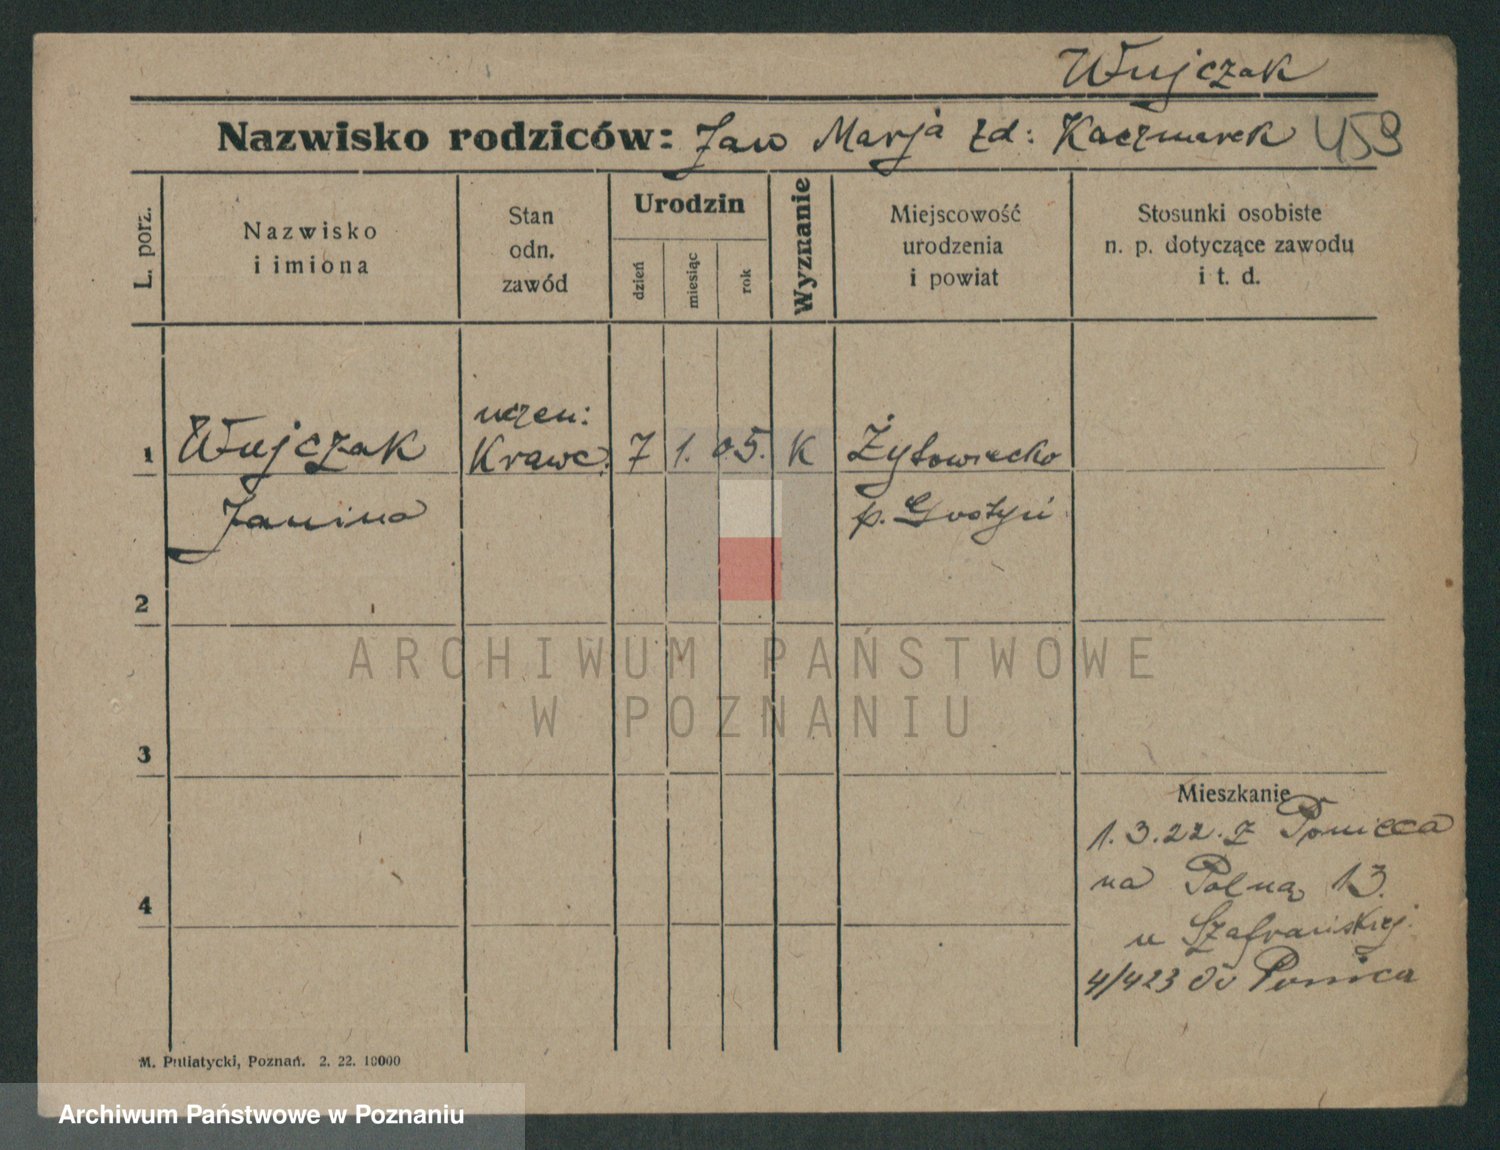 Wujczak
Nazwisko rodziców: Jan Marja zd: Kaczmarek 459
L. porz.
Nazwisko
i imiona
Stan
odn.
zawód
Urodzin
dzień
miesiąc
rok
Wyznanie
Miejscowość
urodzenia
i powiat
Stosunki osobiste
n. p. dotyczące zawodu
i t. d.
uczen:
1 Wujczak Krawc. 7 1. 05. K Żytowiecko
Janina p. Gostyń
2
ARCHIWUM PAŃSTWOWE
W POZNANIU
3
Mieszkanie
1.3.22. z Poniecca
na Polną 13.
4
u Szafrańskiej.
4/423 do Ponieca
M. Putiatycki, Poznań. 2. 22. 10000
Archiwum Państwowe w Poznaniu